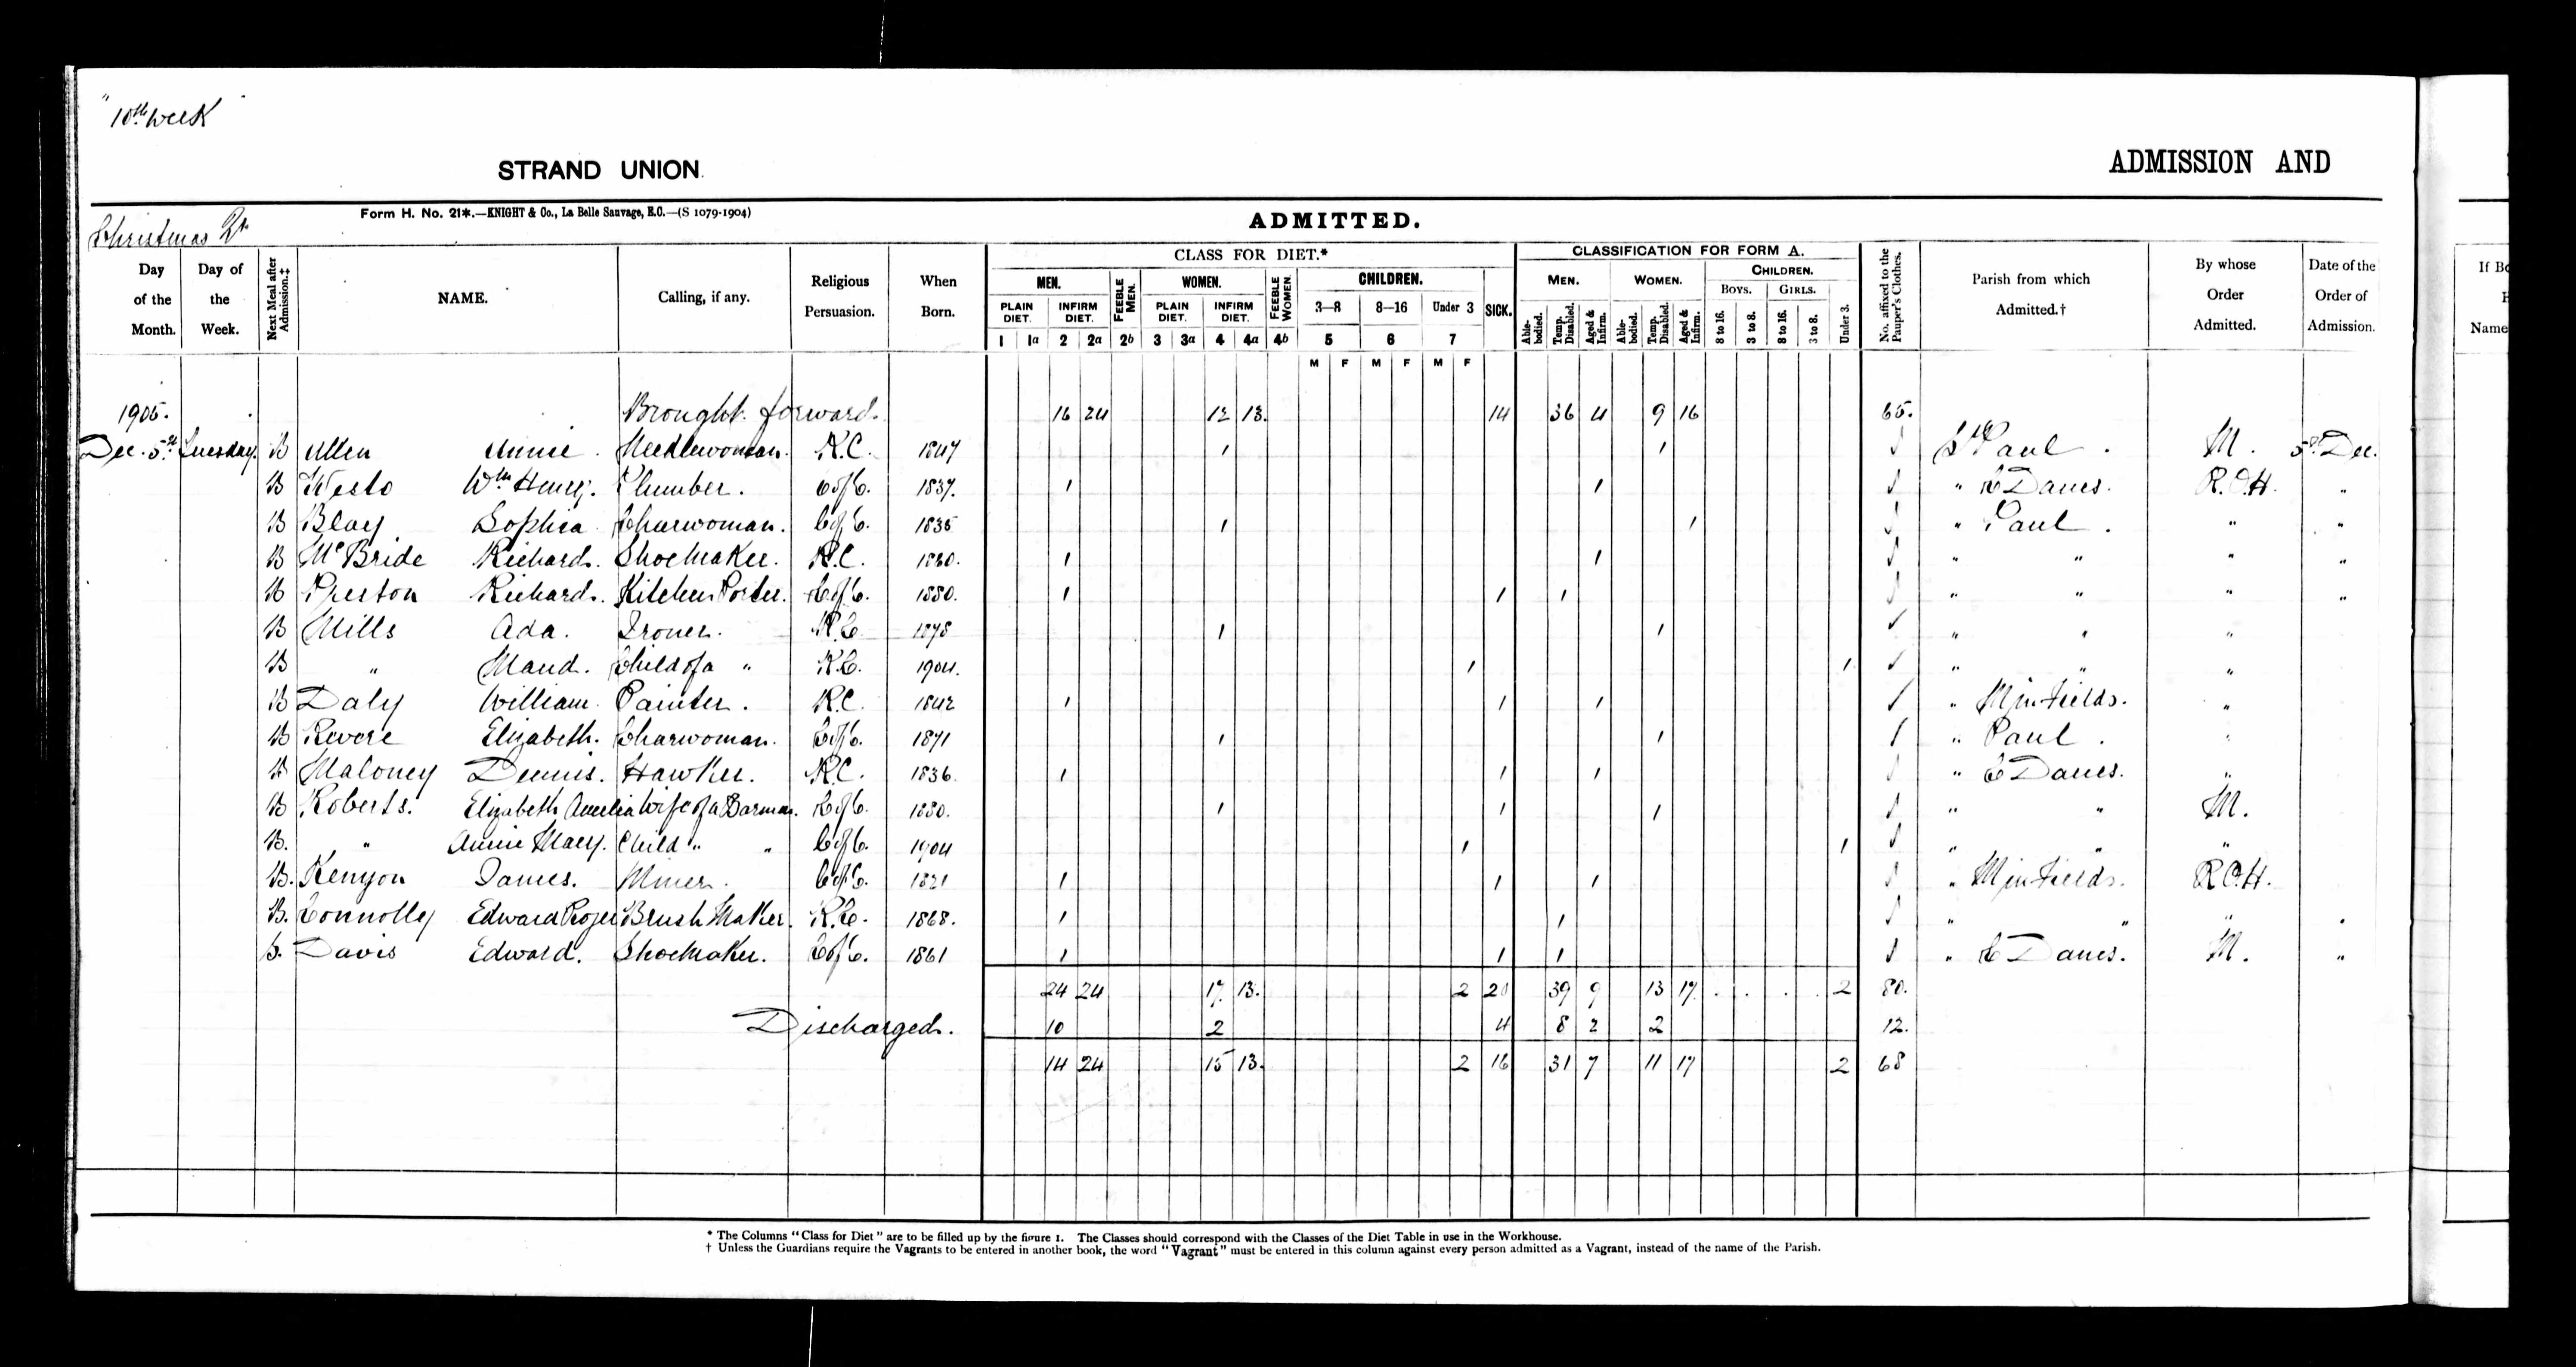 " 10th Week
STRAND UNION.
ADMISSION AND
Form H. No. 21*.—KNIGHT & Co., La Belle Sauvage, E.C.—(S 1079-1904)
ADMITTED.
Christmas Qr
CLASS FOR DIET.*
CLASSIFICATION FOR FORM A.
Day of the Month.
Day of the Week.
Next Meal after Admission.‡
NAME.
Calling, if any.
Religious Persuasion.
When Born.
MEN. FEEBLE MEN. WOMEN. FEEBLE WOMEN. CHILDREN. SICK.
PLAIN DIET. INFIRM DIET. PLAIN DIET. INFIRM DIET. 3—8 8—16 Under 3
1 1a 2 2a 2b 3 3a 4 4a 4b 5 6 7
M F M F M F
MEN. WOMEN. CHILDREN.
BOYS. GIRLS.
Able-bodied. Temp. Disabled. Aged & Infirm. Able-bodied. Temp. Disabled. Aged & Infirm. 8 to 16. 3 to 8. 8 to 16. 3 to 8. Under 3.
No. affixed to the Pauper's Clothes.
Parish from which Admitted.†
By whose Order Admitted.
Date of the Order of Admission.
If Bo
Name
1905. Brought forward. 16 24 12 13. 14 36 4 9 16 65.
Dec. 5th Tuesday. B Allen Annie. Needlewoman. R.C. 1847 1 1 St Paul. M. 5th Dec.
B Westo Wm Henry. Plumber. C of C. 1837. 1 1 " C Danes. R.O.H. "
B Blay Sophia Charwoman. C of C. 1835 1 1 " Paul. " "
B McBride Richard. Shoemaker. R.C. 1860. 1 1 " " " "
B Preston Richard. Kitchen Porter. C of C. 1850. 1 1 1 " " " "
B Mills Ada. Ironer. R.C. 1878 1 1 " " "
B " Maud. Child of a " R.C. 1904. 1 1 " " "
B Daly William. Painter. R.C. 1842 1 1 1 " M in Fields. "
B Revere Elizabeth. Charwoman. C of C. 1871 1 1 " Paul. "
B Maloney Dennis. Hawker. R.C. 1836. 1 1 1 " C Danes. "
B Roberts. Elizabeth Amelia Wife of a Barman. C of C. 1880. 1 1 1 " " M.
B. " Annie Mary. Child " " C of C. 1904 1 1 " " "
B. Kenyon James. Miner. C of C. 1821 1 1 1 " M in Fields. R.O.H.
B. Connolly Edward Roger Brush Maker. R.C. 1868. 1 1 " " "
B. Davis Edward. Shoemaker. C of C. 1861 1 1 1 " C Danes. M. "
24 24 17. 13. 2 20 39 9 13 17. . . . . 2 80.
Discharged. 10 2 4 8 2 2 12.
14 24 15 13. 2 16 31 7 11 17 2 68
* The Columns "Class for Diet" are to be filled up by the figure 1. The Classes should correspond with the Classes of the Diet Table in use in the Workhouse.
† Unless the Guardians require the Vagrants to be entered in another book, the word "Vagrant" must be entered in this column against every person admitted as a Vagrant, instead of the name of the Parish.